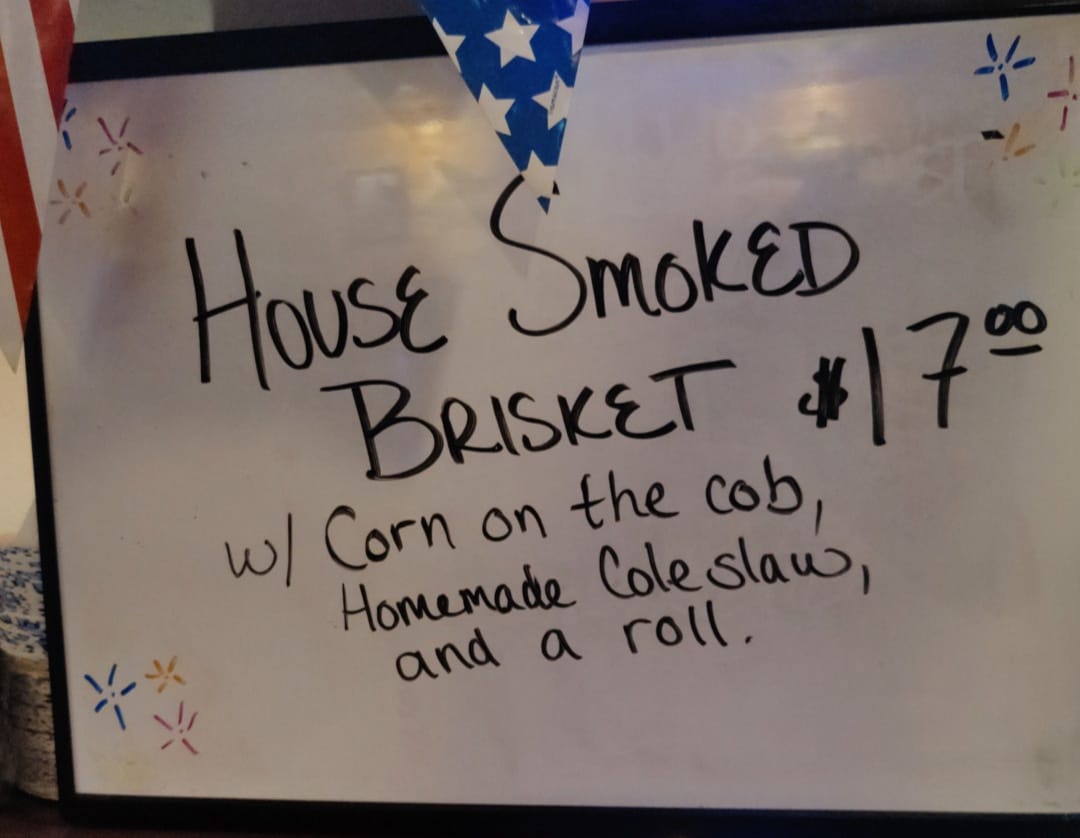 House Smoked
Brisket $17.00
w/ Corn on the cob,
Homemade Coleslaw,
and a roll.